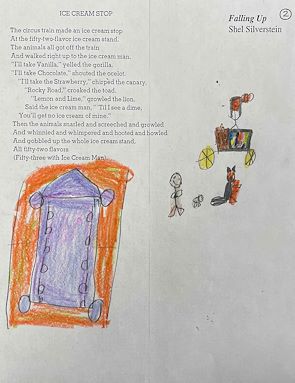 ICE CREAM STOP
The circus train made an ice cream stop
At the fifty-two-flavor ice cream stand.
The animals all got off the train
And walked right up to the ice cream man.
"I'll take Vanilla," yelled the gorilla.
"I'll take Chocolate," shouted the ocelot.
"I'll take the Strawberry," chirped the canary.
"Rocky Road," croaked the toad.
"Lemon and Lime," growled the lion.
Said the ice cream man, "'Til I see a dime,
You'll get no ice cream of mine."
Then the animals snarled and screeched and growled
And whinnied and whimpered and hooted and howled
And gobbled up the whole ice cream stand.
All fifty-two flavors
(Fifty-three with Ice Cream Man).
2
Falling Up
Shel Silverstein